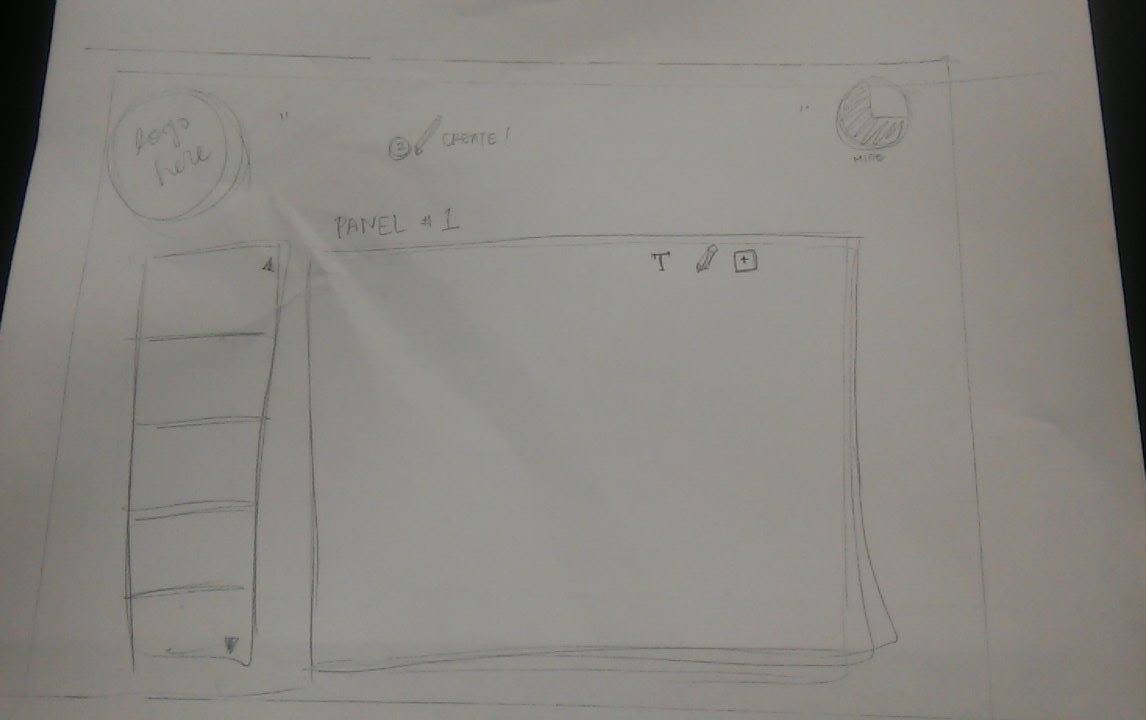 logo
here
② CREATE!
PANEL #1
T